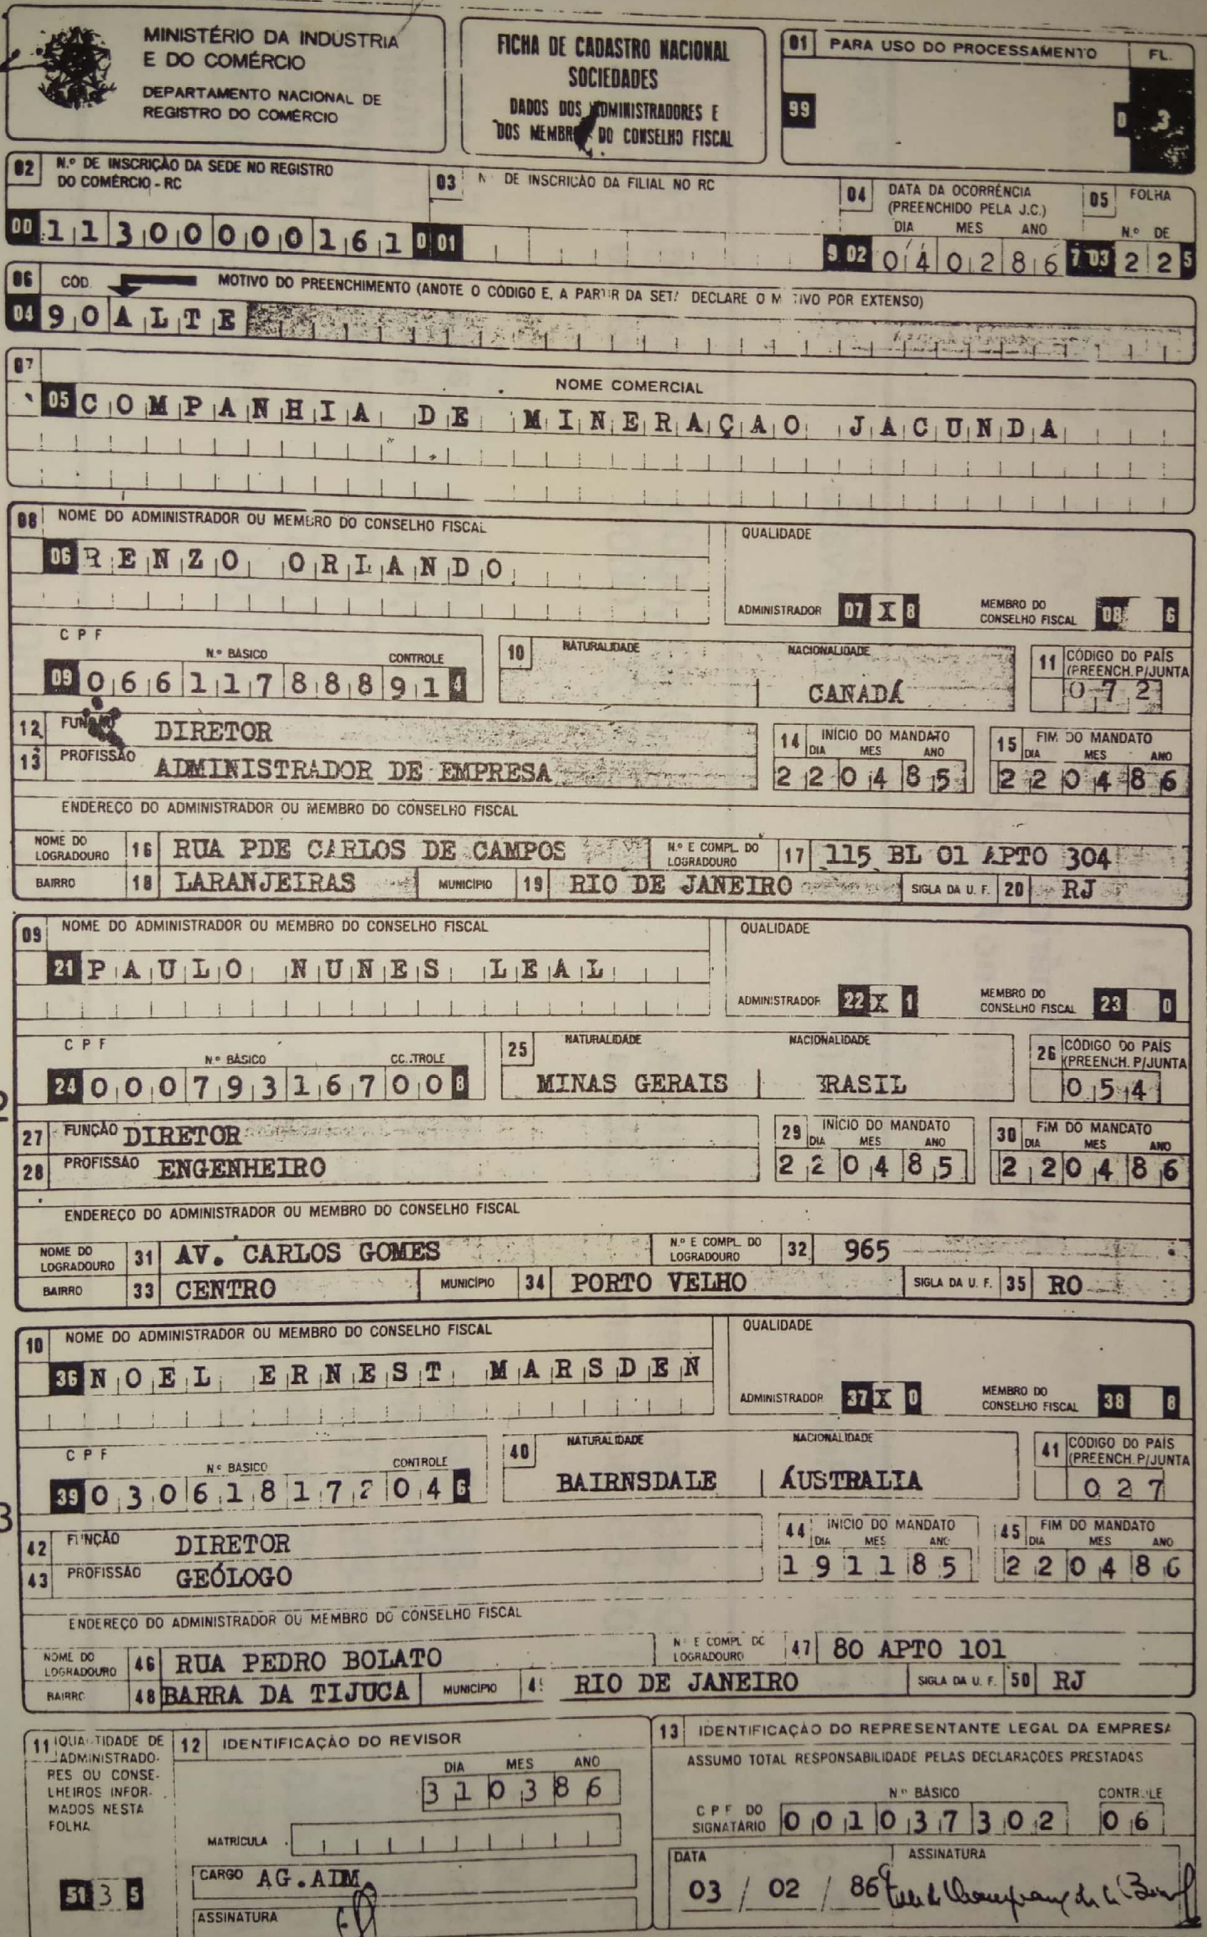 MINISTÉRIO DA INDUSTRIA
E DO COMÉRCIO
DEPARTAMENTO NACIONAL DE
REGISTRO DO COMÉRCIO
FICHA DE CADASTRO NACIONAL
SOCIEDADES
DADOS DOS ADMINISTRADORES E
DOS MEMBROS DO CONSELHO FISCAL
01 PARA USO DO PROCESSAMENTO FL.
99 0 3
02 N.º DE INSCRIÇÃO DA SEDE NO REGISTRO
DO COMÉRCIO - RC
00 11300000161 0
03 Nº DE INSCRIÇÃO DA FILIAL NO RC
01 9
04 DATA DA OCORRÊNCIA
(PREENCHIDO PELA J.C.)
DIA MES ANO
02 040286 7
05 FOLHA
N.º DE
03 2 2 5
06 CÓD. MOTIVO DO PREENCHIMENTO (ANOTE O CÓDIGO E, A PARTIR DA SETA DECLARE O MOTIVO POR EXTENSO)
04 90 ALTE
07 NOME COMERCIAL
05 COMPANHIA DE MINERAÇAO JACUNDA
08 NOME DO ADMINISTRADOR OU MEMBRO DO CONSELHO FISCAL QUALIDADE
06 RENZO ORLANDO
ADMINISTRADOR 07 X 8 MEMBRO DO
CONSELHO FISCAL 08 6
CPF N.º BÁSICO CONTROLE
09 066117888 91 4
10 NATURALIDADE NACIONALIDADE
CANADÁ
11 CÓDIGO DO PAÍS
(PREENCH. P/JUNTA
072
12 FUNÇÃO DIRETOR
13 PROFISSÃO ADMINISTRADOR DE EMPRESA
14 INÍCIO DO MANDATO
DIA MES ANO
220485
15 FIM DO MANDATO
DIA MES ANO
220486
ENDEREÇO DO ADMINISTRADOR OU MEMBRO DO CONSELHO FISCAL
NOME DO
LOGRADOURO 16 RUA PDE CARLOS DE CAMPOS N.º E COMPL. DO
LOGRADOURO 17 115 BL 01 APTO 304
BAIRRO 18 LARANJEIRAS MUNICÍPIO 19 RIO DE JANEIRO SIGLA DA U. F. 20 RJ
09 NOME DO ADMINISTRADOR OU MEMBRO DO CONSELHO FISCAL QUALIDADE
21 PAULO NUNES LEAL
ADMINISTRADOR 22 X 1 MEMBRO DO
CONSELHO FISCAL 23 0
CPF Nº BÁSICO CONTROLE
24 000793167 00 8
25 NATURALIDADE NACIONALIDADE
MINAS GERAIS BRASIL
26 CÓDIGO DO PAÍS
(PREENCH. P/JUNTA
054
27 FUNÇÃO DIRETOR
28 PROFISSÃO ENGENHEIRO
29 INÍCIO DO MANDATO
DIA MES ANO
220485
30 FIM DO MANDATO
DIA MES ANO
220486
ENDEREÇO DO ADMINISTRADOR OU MEMBRO DO CONSELHO FISCAL
NOME DO
LOGRADOURO 31 AV. CARLOS GOMES N.º E COMPL. DO
LOGRADOURO 32 965
BAIRRO 33 CENTRO MUNICÍPIO 34 PORTO VELHO SIGLA DA U. F. 35 RO
10 NOME DO ADMINISTRADOR OU MEMBRO DO CONSELHO FISCAL QUALIDADE
36 NOEL ERNEST MARSDEN
ADMINISTRADOR 37 X 0 MEMBRO DO
CONSELHO FISCAL 38 8
CPF Nº BÁSICO CONTROLE
39 030618172 04 6
40 NATURALIDADE NACIONALIDADE
BAIRNSDALE ÁUSTRALIA
41 CÓDIGO DO PAÍS
(PREENCH. P/JUNTA
027
42 FUNÇÃO DIRETOR
43 PROFISSÃO GEÓLOGO
44 INICIO DO MANDATO
DIA MES ANO
191185
45 FIM DO MANDATO
DIA MES ANO
220486
ENDEREÇO DO ADMINISTRADOR OU MEMBRO DO CONSELHO FISCAL
NOME DO
LOGRADOURO 46 RUA PEDRO BOLATO Nº E COMPL DO
LOGRADOURO 47 80 APTO 101
BAIRRO 48 BARRA DA TIJUCA MUNICÍPIO 49 RIO DE JANEIRO SIGLA DA U. F. 50 RJ
11 QUANTIDADE DE
ADMINISTRADO-
RES OU CONSE-
LHEIROS INFOR-
MADOS NESTA
FOLHA
51 3 5
12 IDENTIFICAÇÃO DO REVISOR
DIA MES ANO
310386
MATRÍCULA
CARGO AG.ADM.
ASSINATURA
13 IDENTIFICAÇÃO DO REPRESENTANTE LEGAL DA EMPRESA
ASSUMO TOTAL RESPONSABILIDADE PELAS DECLARAÇÕES PRESTADAS
Nº BÁSICO CONTROLE
CPF DO
SIGNATÁRIO 001037302 06
DATA ASSINATURA
03 / 02 / 86